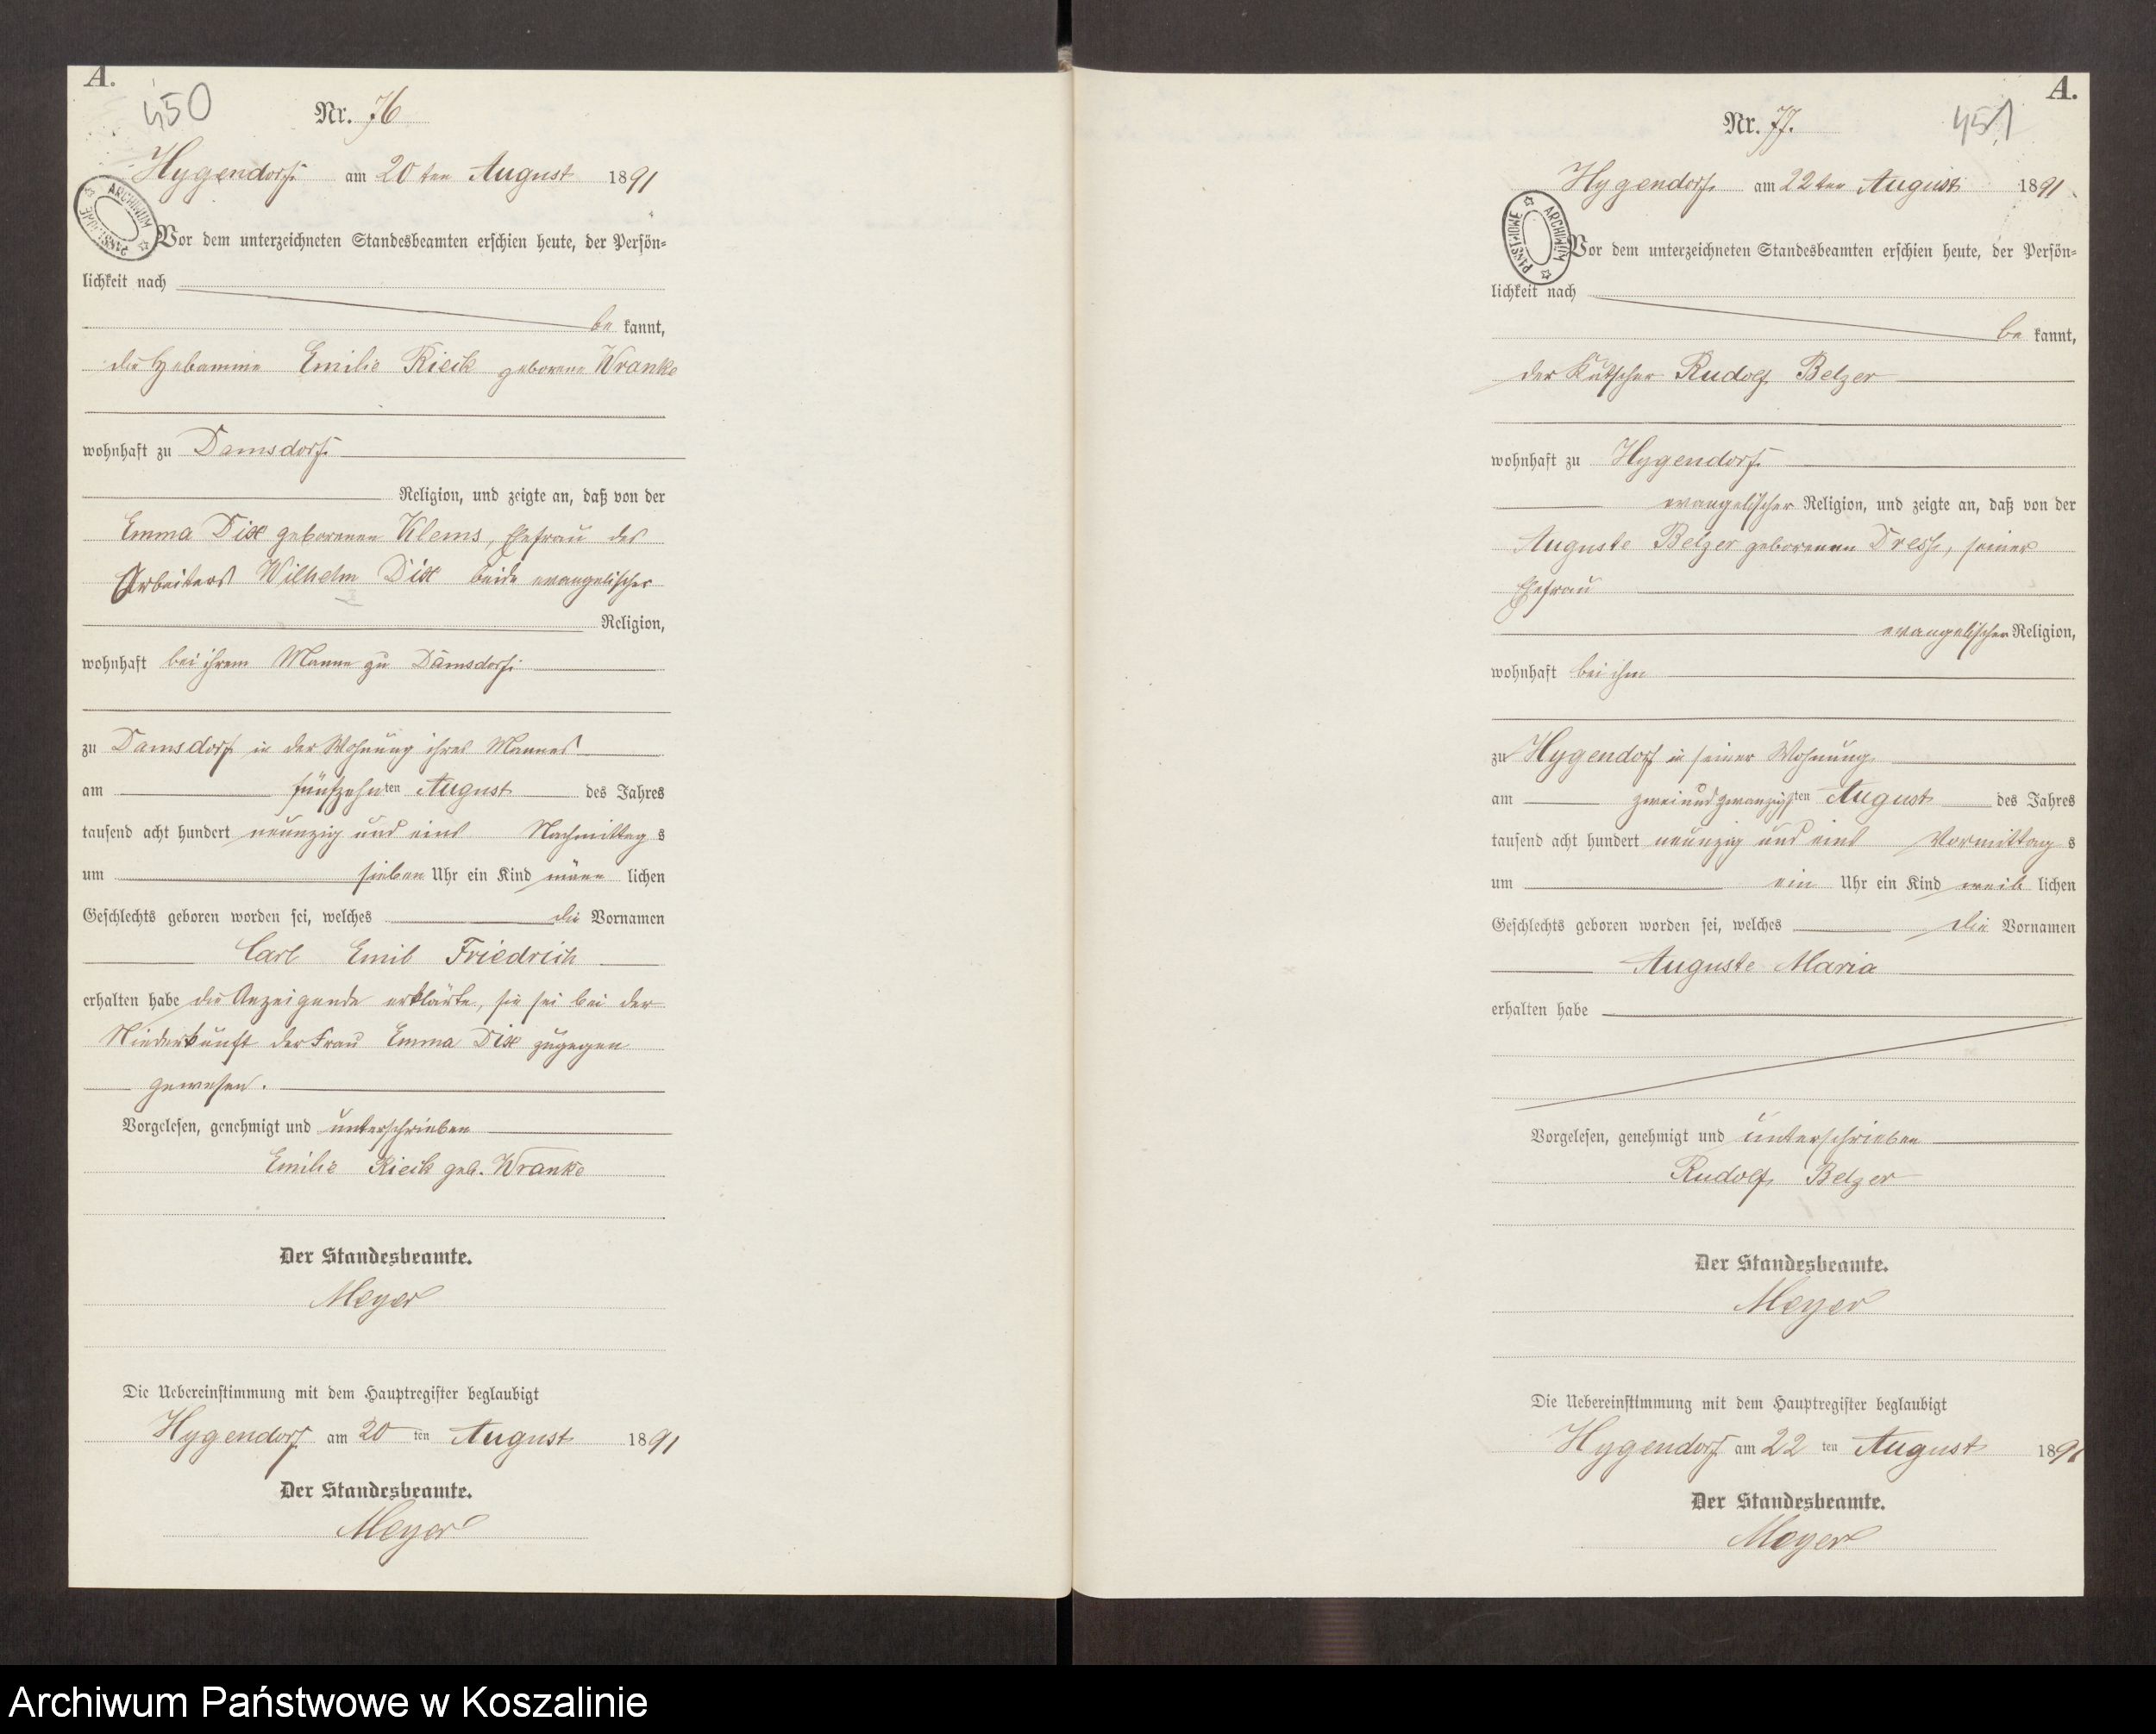 A.
450
Nr. 76
Hygendorf am 20ten August 1891
ARCHIWUM PAŃSTWOWE
Vor dem unterzeichneten Standesbeamten erschien heute, der Persön=
lichkeit nach
be kannt,
die Hebamme Emilie Rieck geborene Wranke
wohnhaft zu Damsdorf
Religion, und zeigte an, daß von der
Emma Dix geborenen Klems, Ehefrau des
Arbeiters Wilhelm Dix beide evangelischer
Religion,
wohnhaft bei ihrem Manne zu Damsdorf
zu Damsdorf in der Wohnung ihres Mannes
am fünfzehnten August des Jahres
tausend acht hundert neunzig und eins Nachmittag s
um sieben Uhr ein Kind männ lichen
Geschlechts geboren worden sei, welches die Vornamen
Carl Emil Friedrich
erhalten habe die Anzeigende erklärte, sie sei bei der
Niederkunft der Frau Emma Dix zugegen
gewesen.
Vorgelesen, genehmigt und unterschrieben
Emilie Rieck geb. Wranke
Der Standesbeamte.
Meyer
Die Uebereinstimmung mit dem Hauptregister beglaubigt
Hygendorf am 20 ten August 1891
Der Standesbeamte.
Meyer
A.
451
Nr. 77.
Hygendorf am 22ten August 1891
ARCHIWUM PAŃSTWOWE
Vor dem unterzeichneten Standesbeamten erschien heute, der Persön=
lichkeit nach
be kannt,
der Kutscher Rudolf Belzer
wohnhaft zu Hygendorf
evangelischer Religion, und zeigte an, daß von der
Auguste Belzer geborenen Dress, seiner
Ehefrau
evangelischer Religion,
wohnhaft bei ihm
zu Hygendorf in seiner Wohnung
am zweiundzwanzigsten August des Jahres
tausend acht hundert neunzig und eins Vormittag s
um ein Uhr ein Kind weib lichen
Geschlechts geboren worden sei, welches die Vornamen
Auguste Maria
erhalten habe
Vorgelesen, genehmigt und unterschrieben
Rudolf Belzer
Der Standesbeamte.
Meyer
Die Uebereinstimmung mit dem Hauptregister beglaubigt
Hygendorf am 22 ten August 1891
Der Standesbeamte.
Meyer
Archiwum Państwowe w Koszalinie